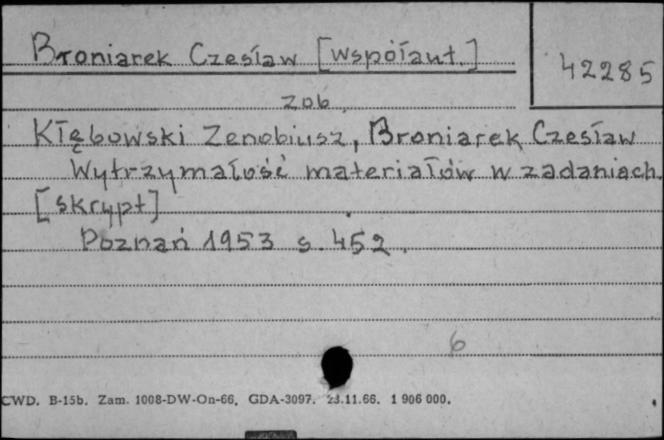 Broniarek Czesław [współaut.]
42285
zob.
Kłębowski Zenobiusz, Broniarek Czesław
Wytrzymałość materiałów w zadaniach.
[skrypt]
Poznań 1953 s. 452.
6
CWD. B-15b. Zam. 1008-DW-On-66. GDA-3097. 23.11.66. 1 906 000.